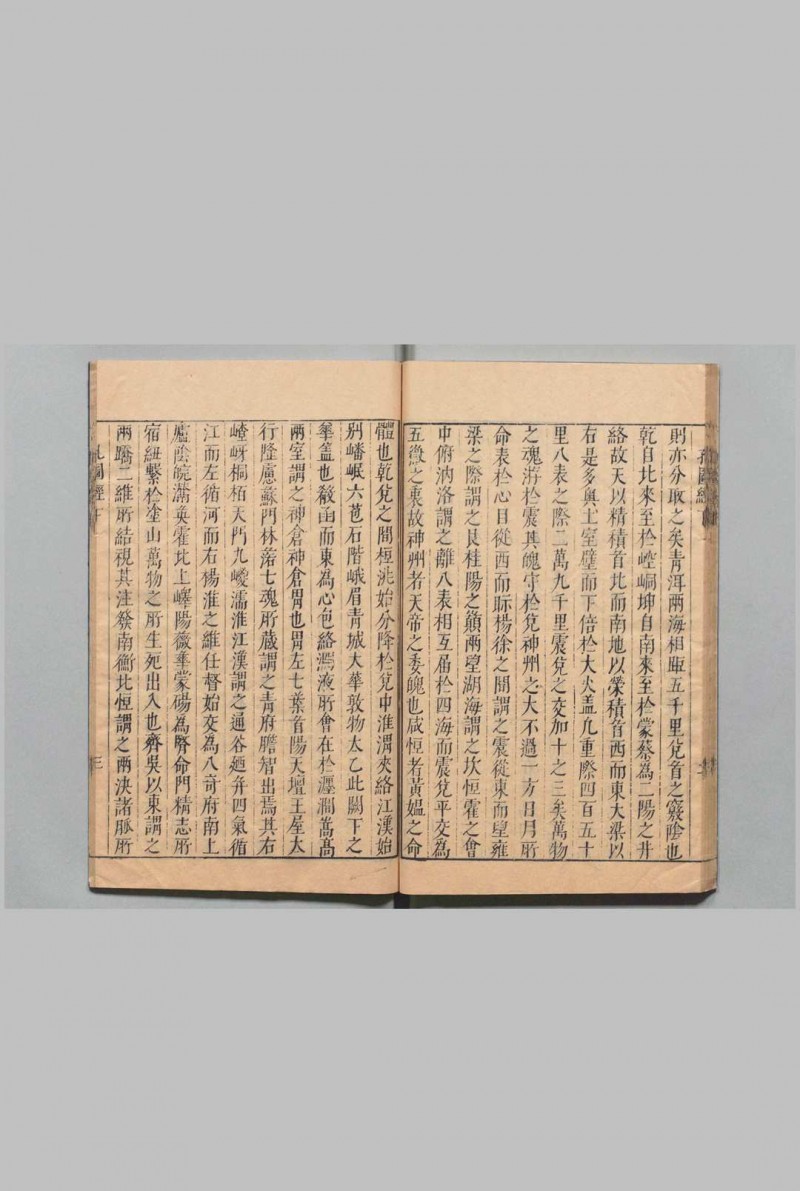 則亦分取之矣青洱兩海相距五千里兌首之竅陰也
乾自北來至於崆峒坤自南來至於蒙蔡為二陽之井
絡故天以精積首北而南地以榮積首西而東大梁以
右是多輿土室壁而下倍於大火盖几重際四百五十
里八表之際二萬九千里震兌之交加十之三矣萬物
之魂游於震其魄守於兌神州之大不過一方日月所
命表於心目從西而眎楊徐之間謂之震從東而望雍
梁之際謂之艮桂陽之嶺兩望湖海謂之坎恒霍之會
中俯汭洛謂之離八表相互届於四海而震兌平交為
五徼之裏故神州者天帝之委魄也咸恒者黃媼之命
體也乾兌之間極洮始分降於兌中淮渭夾絡江漢始
别嶓岷六苞石階峨眉青城大華敦物太乙此闕下之
華盖也殽函而東為心包絡澗液所會在於瀍澗嵩高
兩室謂之神倉神倉胃也胃左七葉首陽天壇王屋太
行隆慮蘇門林落七魂所蔵謂之青府膽智出焉其右
嵖岈桐栢天門九嵕濡淮江漢謂之通谷廻弁四氣循
江而左循河而右楊淮之維任督始交為八竒府南上
廬陰皖灊奐霍北上嶧陽薇華蒙碭為腎命門精志所
宿紐繫於塗山萬物之所生死出入也齊吳以東謂之
兩蹻二維所結視其注發南衡北恒謂之兩決諸脈所